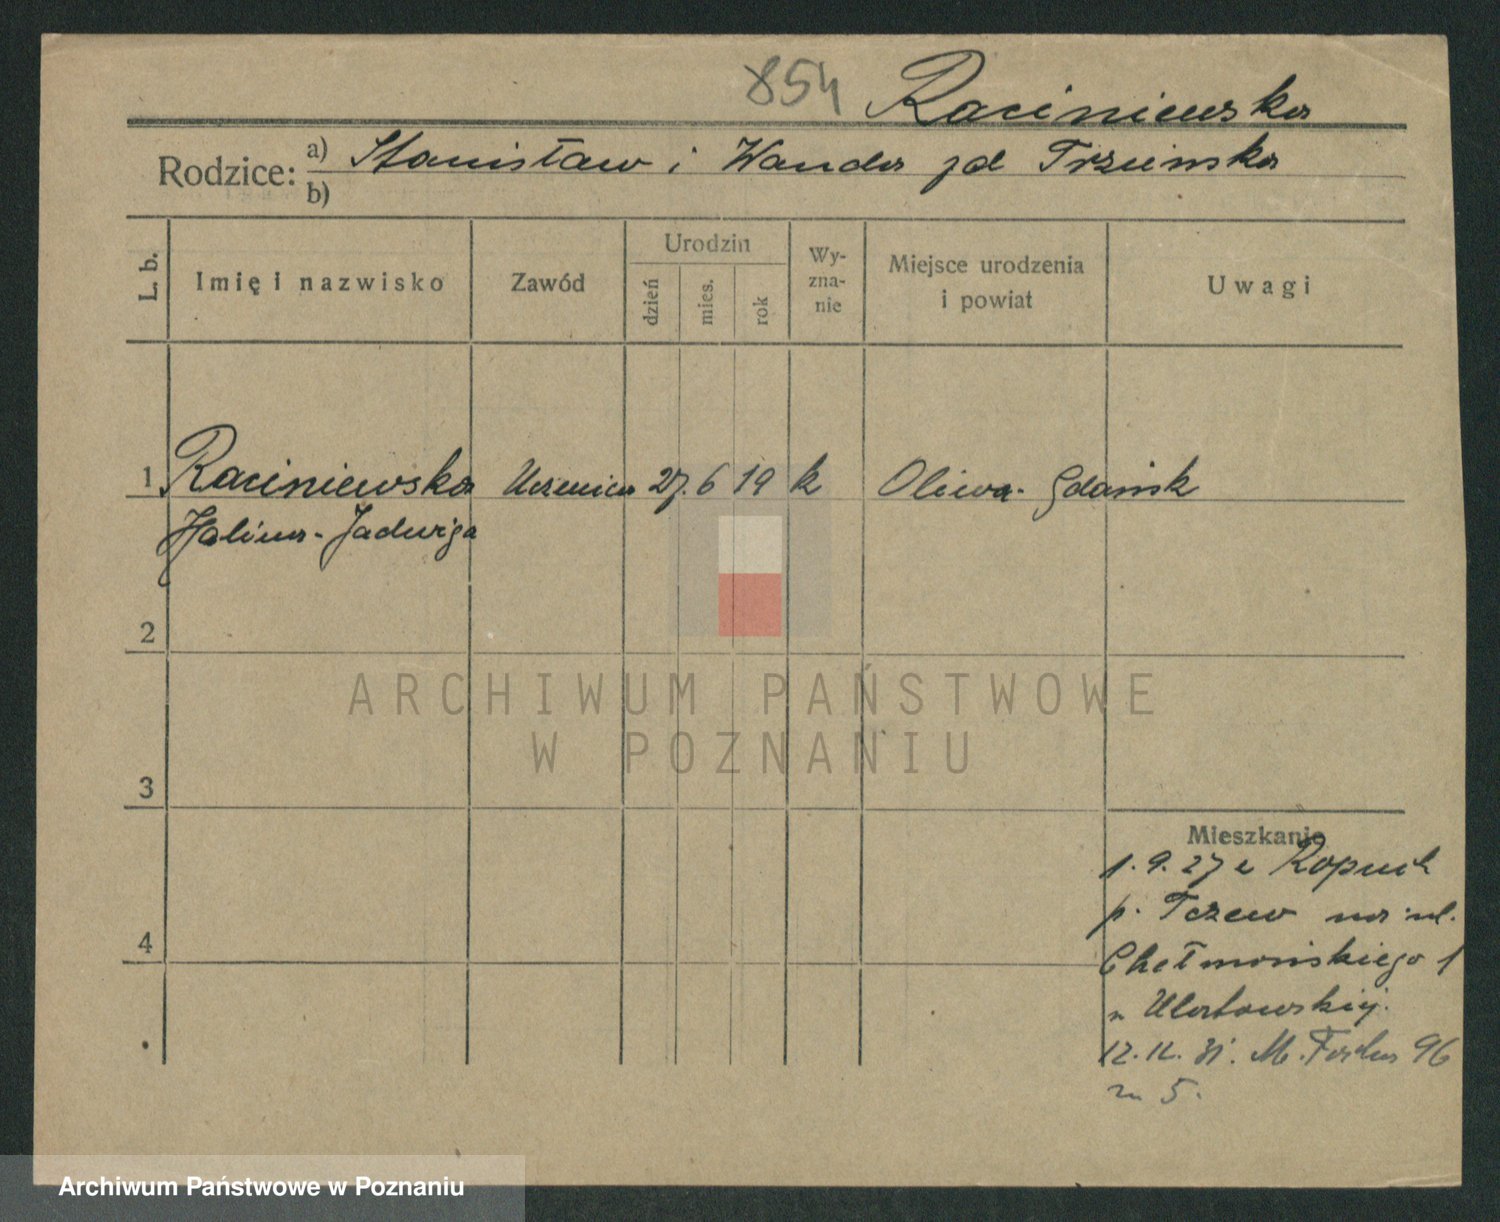 854 Raciniewska
Rodzice: a) Stanisław i Wanda zd Trzcińska
b)
L. b. Imię i nazwisko Zawód Urodzin dzień mies. rok Wy-zna-nie Miejsce urodzenia i powiat Uwagi
1 Raciniewska Uczenica 27. 6 19 k Oliwa - Gdańsk
Halina - Jadwiga
2
ARCHIWUM PAŃSTWOWE
W POZNANIU
3
Mieszkanie
1. 9. 27 z
p. Tczew na ul.
4
Chełmońskiego 1
12. 12. 31. M. Focha 96
m 5.
Archiwum Państwowe w Poznaniu